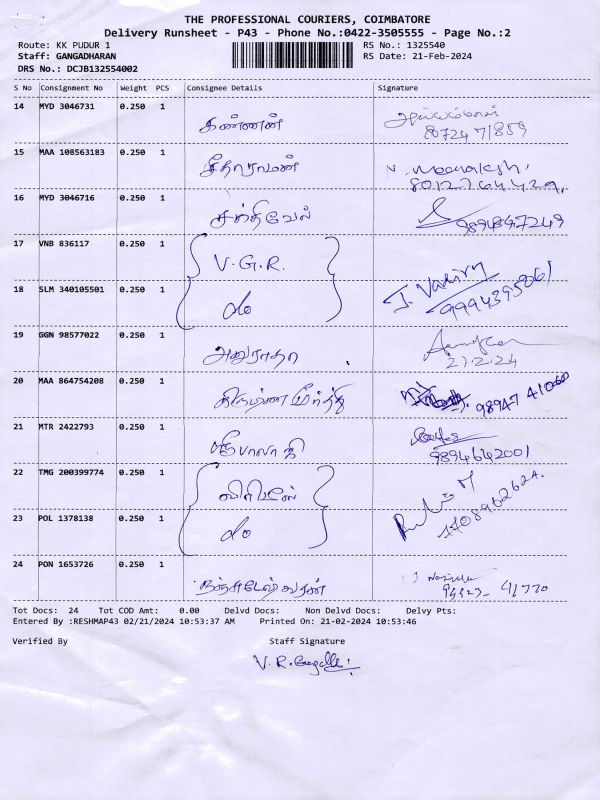 THE PROFESSIONAL COURIERS, COIMBATORE
Delivery Runsheet - P43 - Phone No.:0422-3505555 - Page No.:2
Route: KK PUDUR 1 RS No.: 1325540
Staff: GANGADHARAN RS Date: 21-Feb-2024
DRS No.: DCJB132554002
S No Consignment No Weight PCS Consignee Details Signature
14 MYD 3046731 0.250 1 கண்ணன் 80724 71859
15 MAA 108563183 0.250 1 சீதாராமன்
16 MYD 3046716 0.250 1 சக்திவேல் 9894847249
17 VNB 836117 0.250 1 V.G.R.
18 SLM 340105501 0.250 1 do
19 GGN 98577022 0.250 1 அனுராதா 21.2.24
20 MAA 864754208 0.250 1 98947 41060
21 MTR 2422793 0.250 1 9894642001
22 TMG 200399774 0.250 1
23 POL 1378138 0.250 1 do
24 PON 1653726 0.250 1
Tot Docs: 24 Tot COD Amt: 0.00 Delvd Docs: Non Delvd Docs: Delvy Pts:
Entered By :RESHMAP43 02/21/2024 10:53:37 AM Printed On: 21-02-2024 10:53:46
Verified By Staff Signature